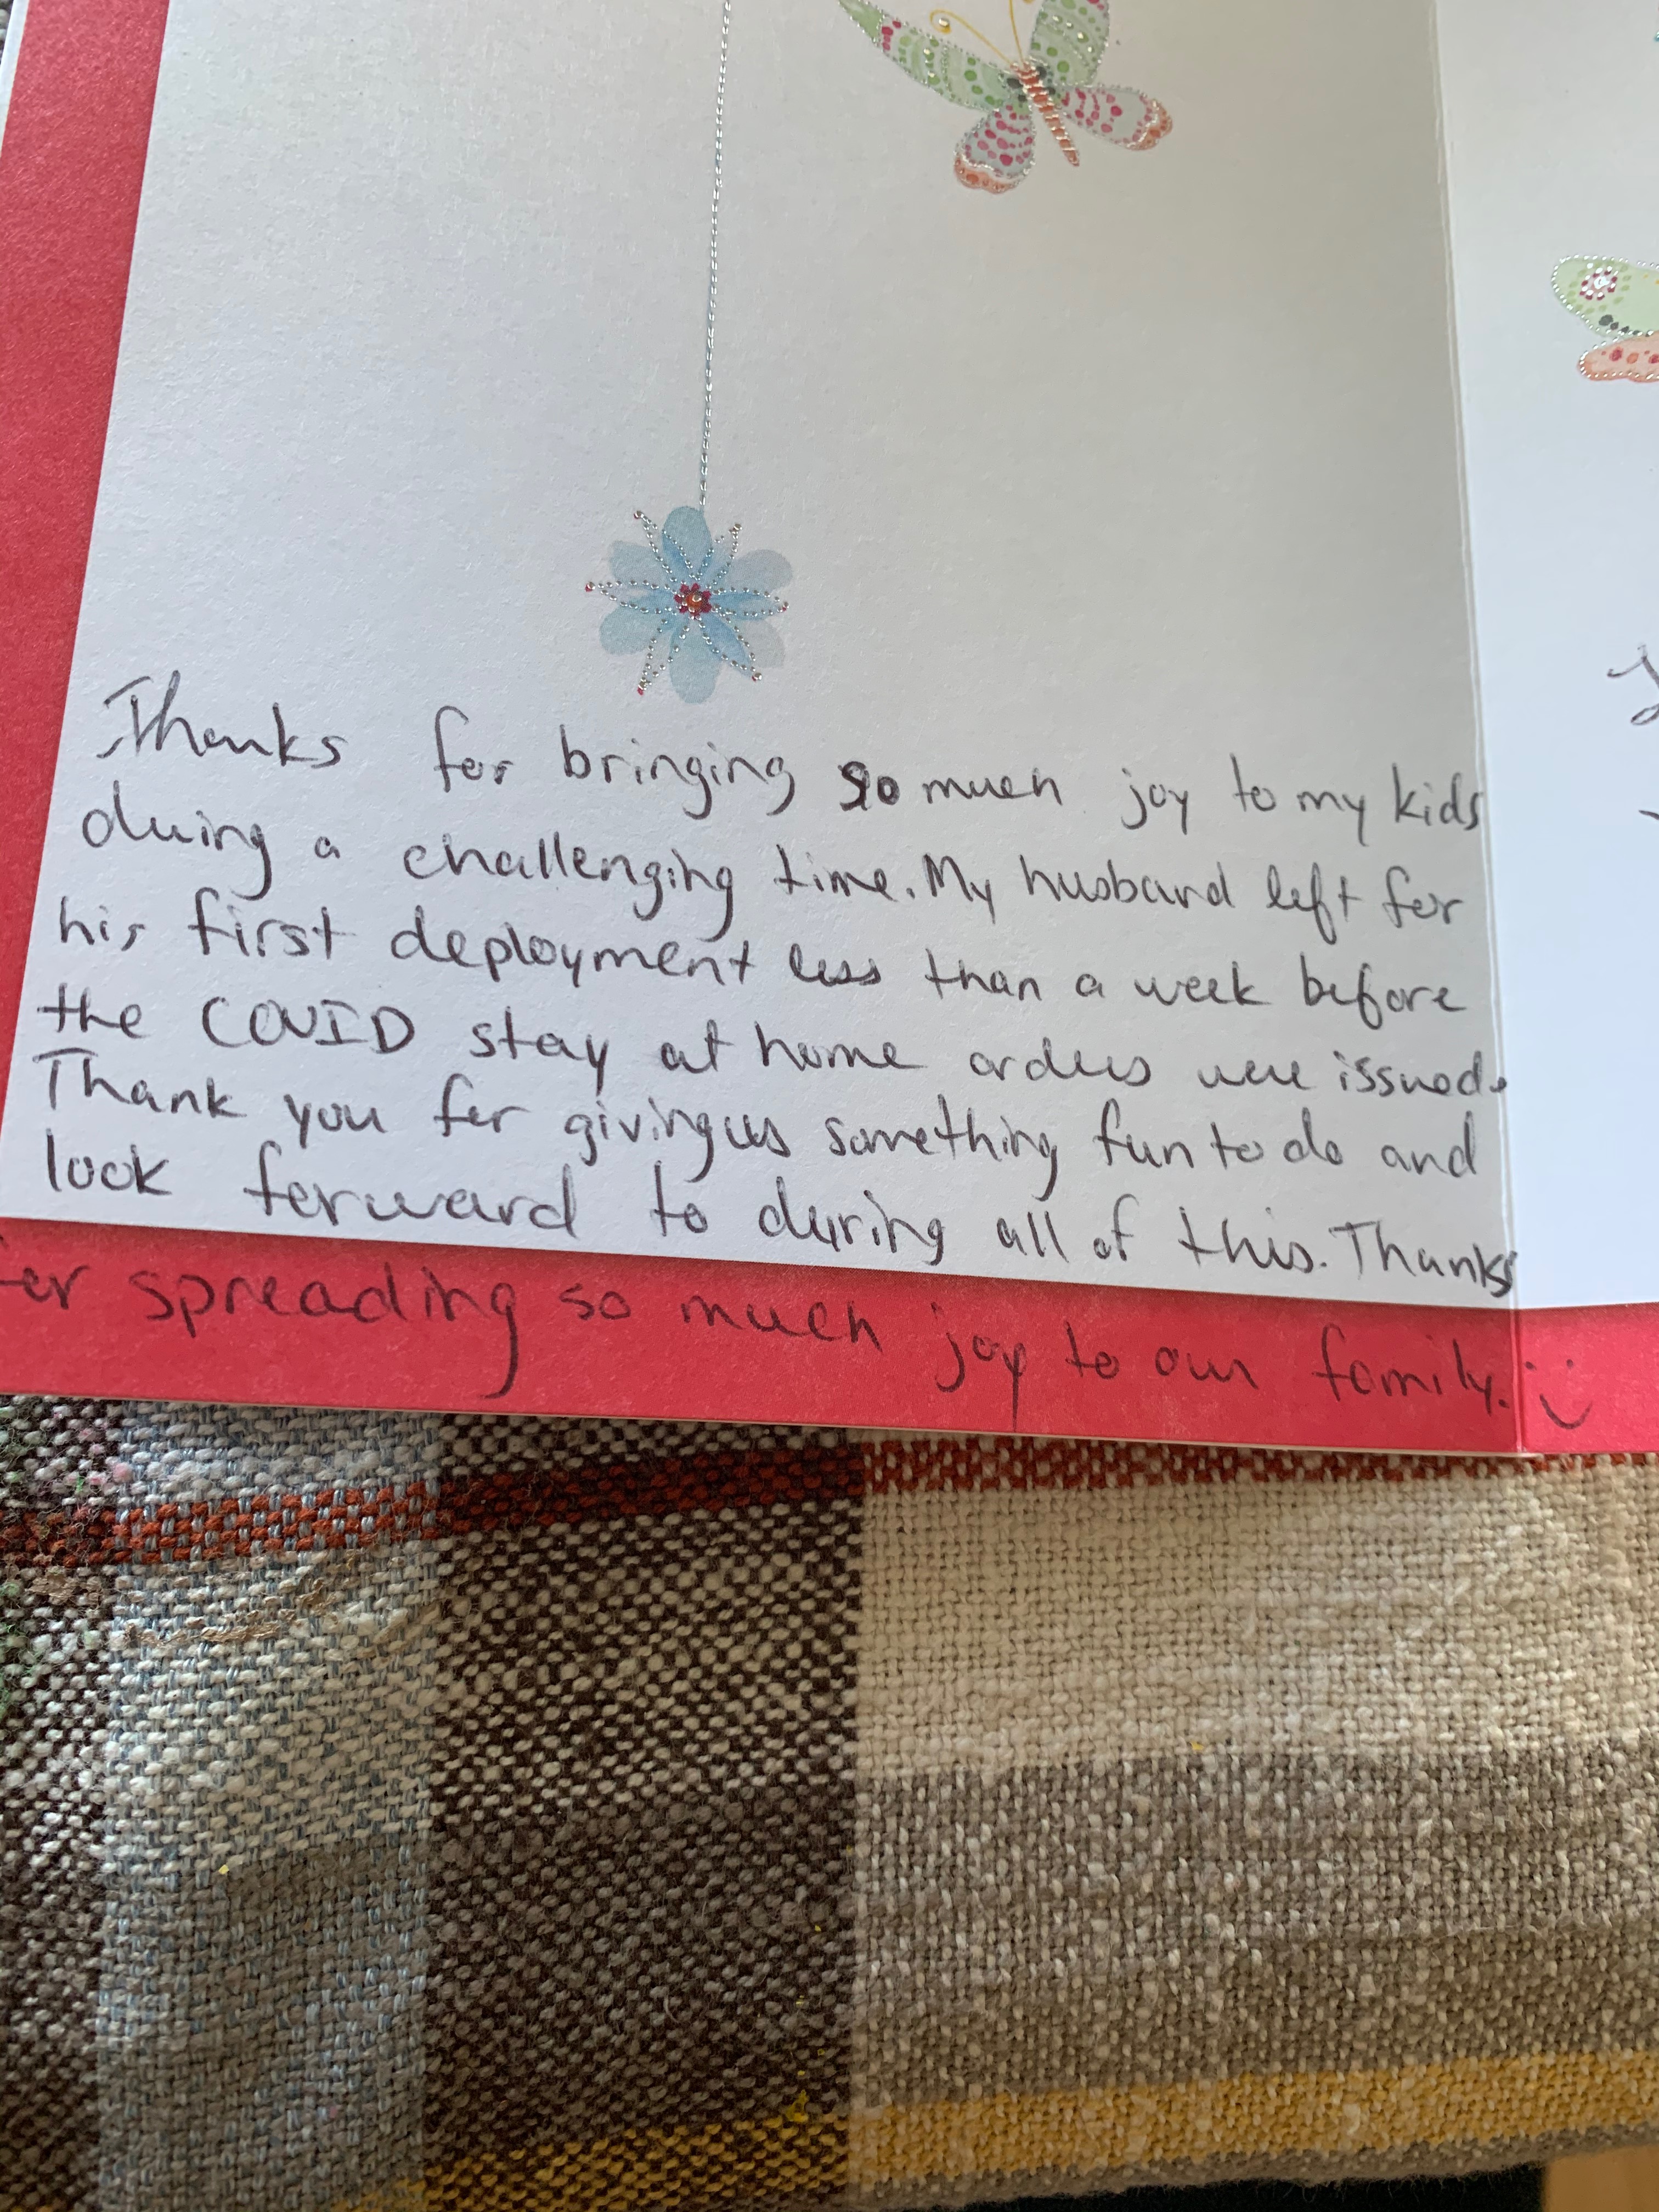 Thanks for bringing so much joy to my kids
duing a challenging time. My husband left for
his first deployment less than a week before
the COVID stay at home orders were issued.
Thank you for giving us something fun to do and
look forward to during all of this. Thanks
for spreading so much joy to our family. :)